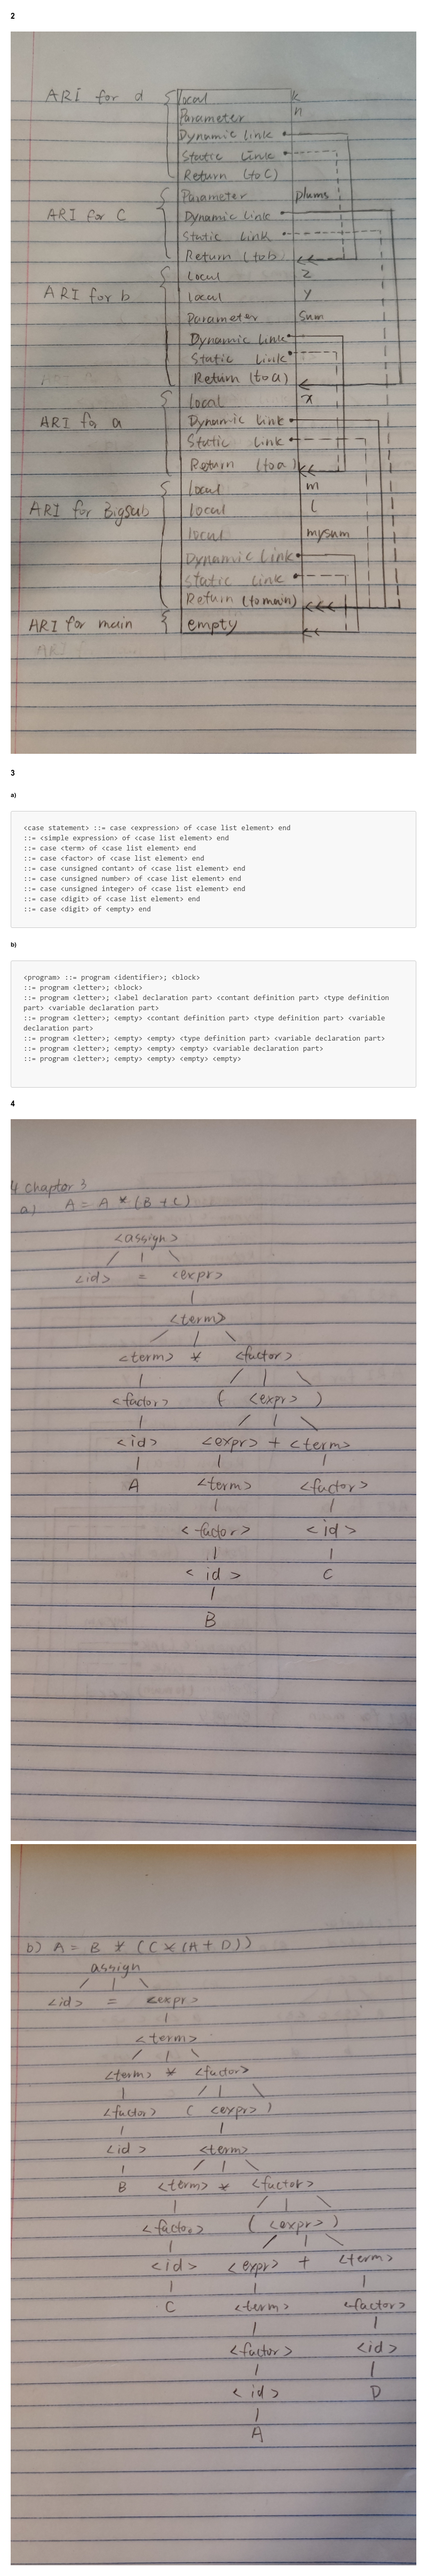 2
ARI for d { local k
Parameter n
Dynamic link
Static link
Return (to C)
ARI for C { Parameter plums
Dynamic link
Static link
Return (to b)
ARI for b { local z
local y
Parameter sum
Dynamic link
Static link
Return (to a)
ARI for a { local x
Dynamic link
Static link
Return (to a)
ARI for Bigsub { local m
local l
local mysum
Dynamic link
Static link
Return (to main)
ARI for main { empty
3
a)
<case statement> ::= case <expression> of <case list element> end
::= <simple expression> of <case list element> end
::= case <term> of <case list element> end
::= case <factor> of <case list element> end
::= case <unsigned contant> of <case list element> end
::= case <unsigned number> of <case list element> end
::= case <unsigned integer> of <case list element> end
::= case <digit> of <case list element> end
::= case <digit> of <empty> end
b)
<program> ::= program <identifier>; <block>
::= program <letter>; <block>
::= program <letter>; <label declaration part> <contant definition part> <type definition
part> <variable declaration part>
::= program <letter>; <empty> <contant definition part> <type definition part> <variable
declaration part>
::= program <letter>; <empty> <empty> <type definition part> <variable declaration part>
::= program <letter>; <empty> <empty> <empty> <variable declaration part>
::= program <letter>; <empty> <empty> <empty> <empty>
4
4 Chapter 3
a) A = A * (B + C)
<assign>
<id> = <expr>
<term>
<term> * <factor>
<factor> ( <expr> )
<id> <expr> + <term>
A <term> <factor>
<factor> <id>
<id> C
B
b) A = B * (C * (A + D))
assign
<id> = <expr>
<term>
<term> * <factor>
<factor> ( <expr> )
<id> <term>
B <term> * <factor>
<factor> ( <expr> )
<id> <expr> + <term>
C <term> <factor>
<factor> <id>
<id> D
A